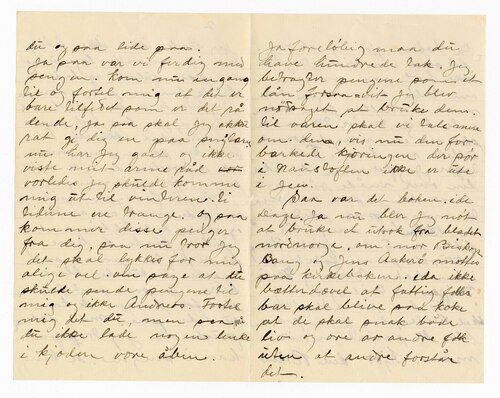 du og paa lide paa.
Ja paa var vi ferdig med
pengen. kom nu engang
til og fortel mig at det er
bare tilfidet som er det raa
dende, ja saa skal jeg akku
rat gi dig en paa
nu har jeg gaat og ikke
viste mit arme raad
vorledes jeg skulde komme
mig ut til vinteren. Ti
tiderne ere trange, og saa
kommer disse penger
fra dig, saa nu tror jeg
det skal lykkes for mig
alige vel. om at du
skulde sende pengene til
mig og ikke Andreas. Fortel
mig det du, men
du ikke lade nogen lenke
i kjeden være åben.
Ja foreløbig maa du
have hundrede tak. Jeg
betragter pengene som et
lån forsaavit jeg blev
nødsaget at bruke dem.
til vaaren skal vi tale mere
om den, vis nu den for
bankede kjøringen der før
i ikke er ute
i Jeu.
Saa var det boken.
Dage. Ja nu blev jeg nødt
at bruke et utrok fra bladet
nordnorge, om nor Biskop
Bang og Jens mottes
paa kirkebaken. eda ikke
bættrdevel at fattig folks
bar skal blive saa koke
at de skal snak både
liv og ore av andre folk
uten at andre forstår
det.